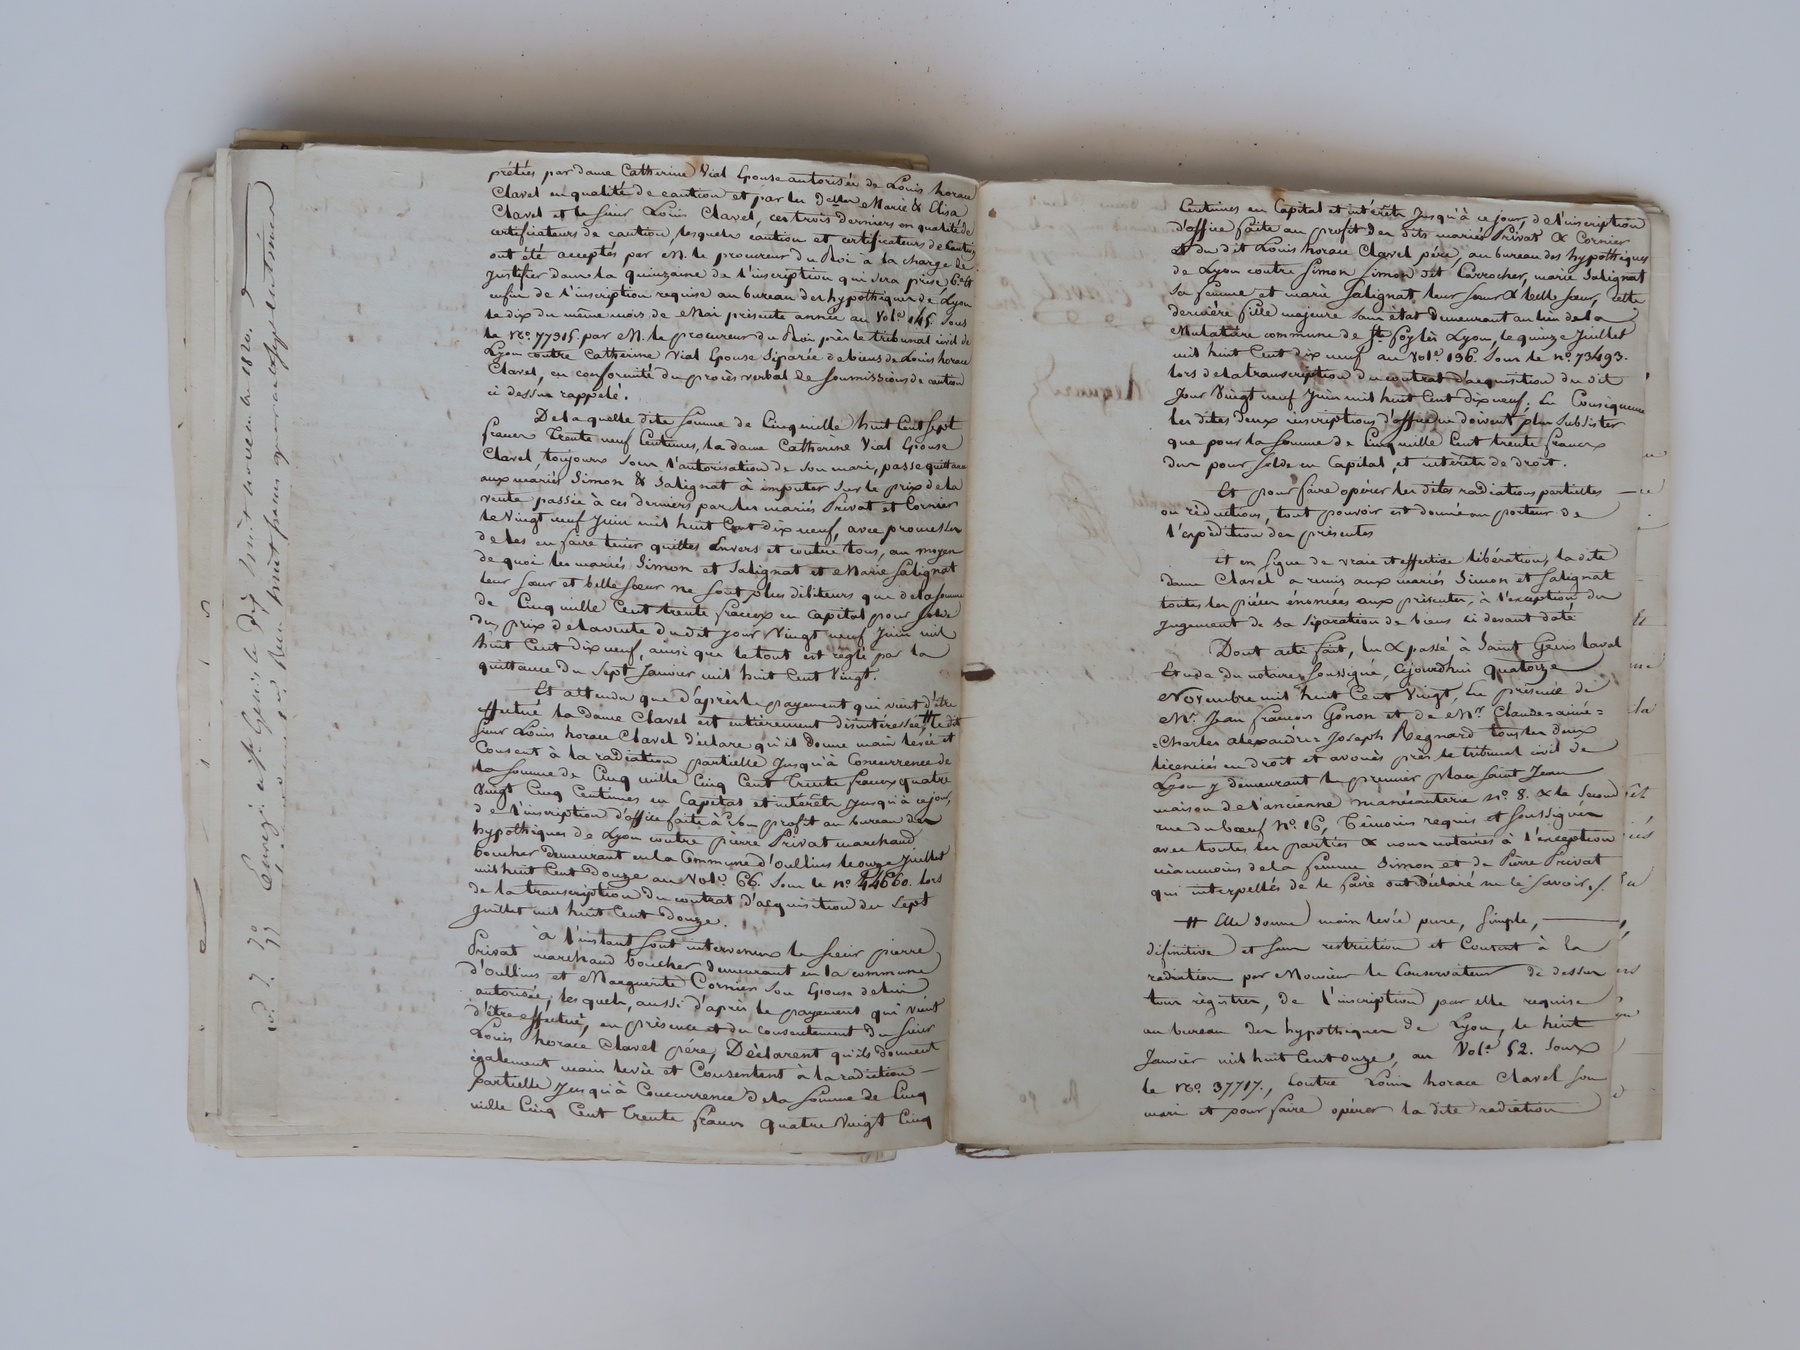 prêtés par dame Catherine Vial Epouse autorisée de Louis horace
Clavel en qualité de caution et par les delles Marie & Elisa
Clavel et le sieur Louis Clavel, ces trois derniers en qualité de
certificateurs de caution, lesquels caution et certificateurs de caution
ont été acceptés par M. le procureur du Roi à la charge de
justifier dans la quinzaine de l'inscription qui sera prise,
enfin de l'inscription requise au bureau des hypothèques de Lyon
le dix du même mois de Mai présente année au Vol.e 145. sous
le No. 77915. par M. le procureur du Roi près le tribunal civil de
Lyon contre Catherine Vial Epouse séparée de biens de Louis horace
Clavel, en conformité du procès verbal de soumissions de caution
ci dessus rappelé.
De la quelle dite somme de Cinq mille huit Cent sept
francs Trente neuf Centimes, la dame Catherine Vial Epouse
Clavel, toujours sous l'autorisation de son mari, passe quittance
aux mariés Simon & Salignat à imputer sur le prix de la
vente passée à ces derniers par les mariés Privat et Cornier
le Vingt neuf Juin mil huit Cent dix neuf, avec promesse
de les en faire tenir quittes Envers et contre tous, au moyen
de quoi les mariés Simon et Salignat et Marie Salignat
leur sœur et belle sœur ne sont plus débiteurs que de la somme
de Cinq mille Cent trente francs en capital pour solde
du prix de la vente du dit jour Vingt neuf Juin mil
huit Cent dix neuf, ainsi que le tout est réglé par la
quittance du sept Janvier mil huit Cent Vingt.
Et attendu que d'après le payement qui vient d'être
effectué la Dame Clavel est entièrement désintéressée, # le dit
sieur Louis horace Clavel déclare qu'il donne main levée et
Consent à la radiation partielle jusqu'à Concurrence de
la somme de Cinq mille Cinq Cent Trente francs quatre
Vingt Cinq Centimes en Capital et intérêts jusqu'à ce jour,
de l'inscription d'office faite à son profit au bureau des
hypothèques de Lyon contre pierre Privat marchand
boucher demeurant en la Commune d'Oullins le onze Juillet
mil huit Cent Douze au Vol.e 66. sous le no. 44660. lors
de la transcription du contrat d'acquisition du Sept
Juillet mil huit Cent Douze.
à l'instant sont intervenus le sieur pierre
Privat marchand boucher demeurant en la commune
d'Oullins et Marguerite Cornier son Epouse de lui
autorisée, lesquels, aussi d'après le payement qui vient
d'être effectué, en présence et du consentement du sieur
Louis horace Clavel père, Déclarent qu'ils donnent
également main levée et Consentent à la radiation
partielle jusqu'à Concurrence de la somme de Cinq
mille Cinq Cent Trente francs quatre Vingt Cinq
Centimes en Capital et intérêts jusqu'à ce jour, de l'inscription
d'office faite au profit des dits mariés Privat & Cornier
et du dit Louis horace Clavel père, au bureau des hypothèques
de Lyon contre Simon Simon dit Perrocher, marie Salignat
sa femme et marie Salignat, leur sœur & belle sœur, cette
dernière fille majeure sans état demeurant au lieu de la
Mulatière commune de Ste foy lès Lyon, le quinze Juillet
mil huit Cent dix neuf au Vol.e 136. sous le no. 73493.
lors de la transcription du contrat d'acquisition du dit
Jour Vingt neuf Juin mil huit Cent dix neuf. En Conséquence
les dites deux inscriptions d'office ne doivent plus subsister
que pour la somme de Cinq mille Cent trente francs
dus pour solde en Capital, et intérêts de droit.
Et pour faire opérer les dites radiations partielles
ou réductions, tout pouvoir est donné au porteur de
l'expédition des présentes
Et en signe de vraie et effective libération, la dite
Dame Clavel a remis aux mariés Simon et Salignat
toutes les pièces énoncées aux présentes, à l'exception du
jugement de sa séparation de biens ci devant daté
Dont acte fait, lu & passé à Saint Genis Laval
Etude du notaire soussigné, cejourd'hui quatorze
Novembre mil huit Cent Vingt, En présence de
Mr. Jean francois Gonon et de Mr. Claude=aimé=
=Charles alexandre=Joseph Regnard tous les deux
licenciés en droit et avoués près le tribunal civil de
Lyon y demeurant le premier place Saint Jean
maison de l'ancienne manécanterie no. 8. & le second
rue du bœuf No. 16, témoins requis et soussignés
avec toutes les parties & nous notaires à l'exception
néanmoins de la femme Simon et de Pierre Privat
qui interpellés de le faire ont déclaré ne le savoir./.
# Elle donne main levée pure, simple,
définitive et sans restriction et Consent à la
radiation par Monsieur le Conservateur de dessus
tous registres, de l'inscription par elle requise
au bureau des hypothèques de Lyon, le huit
Janvier mil huit Cent onze, au Vol.e 52. sous
le No. 37717., Contre Louis horace Clavel son
mari et pour faire opérer la dite radiation